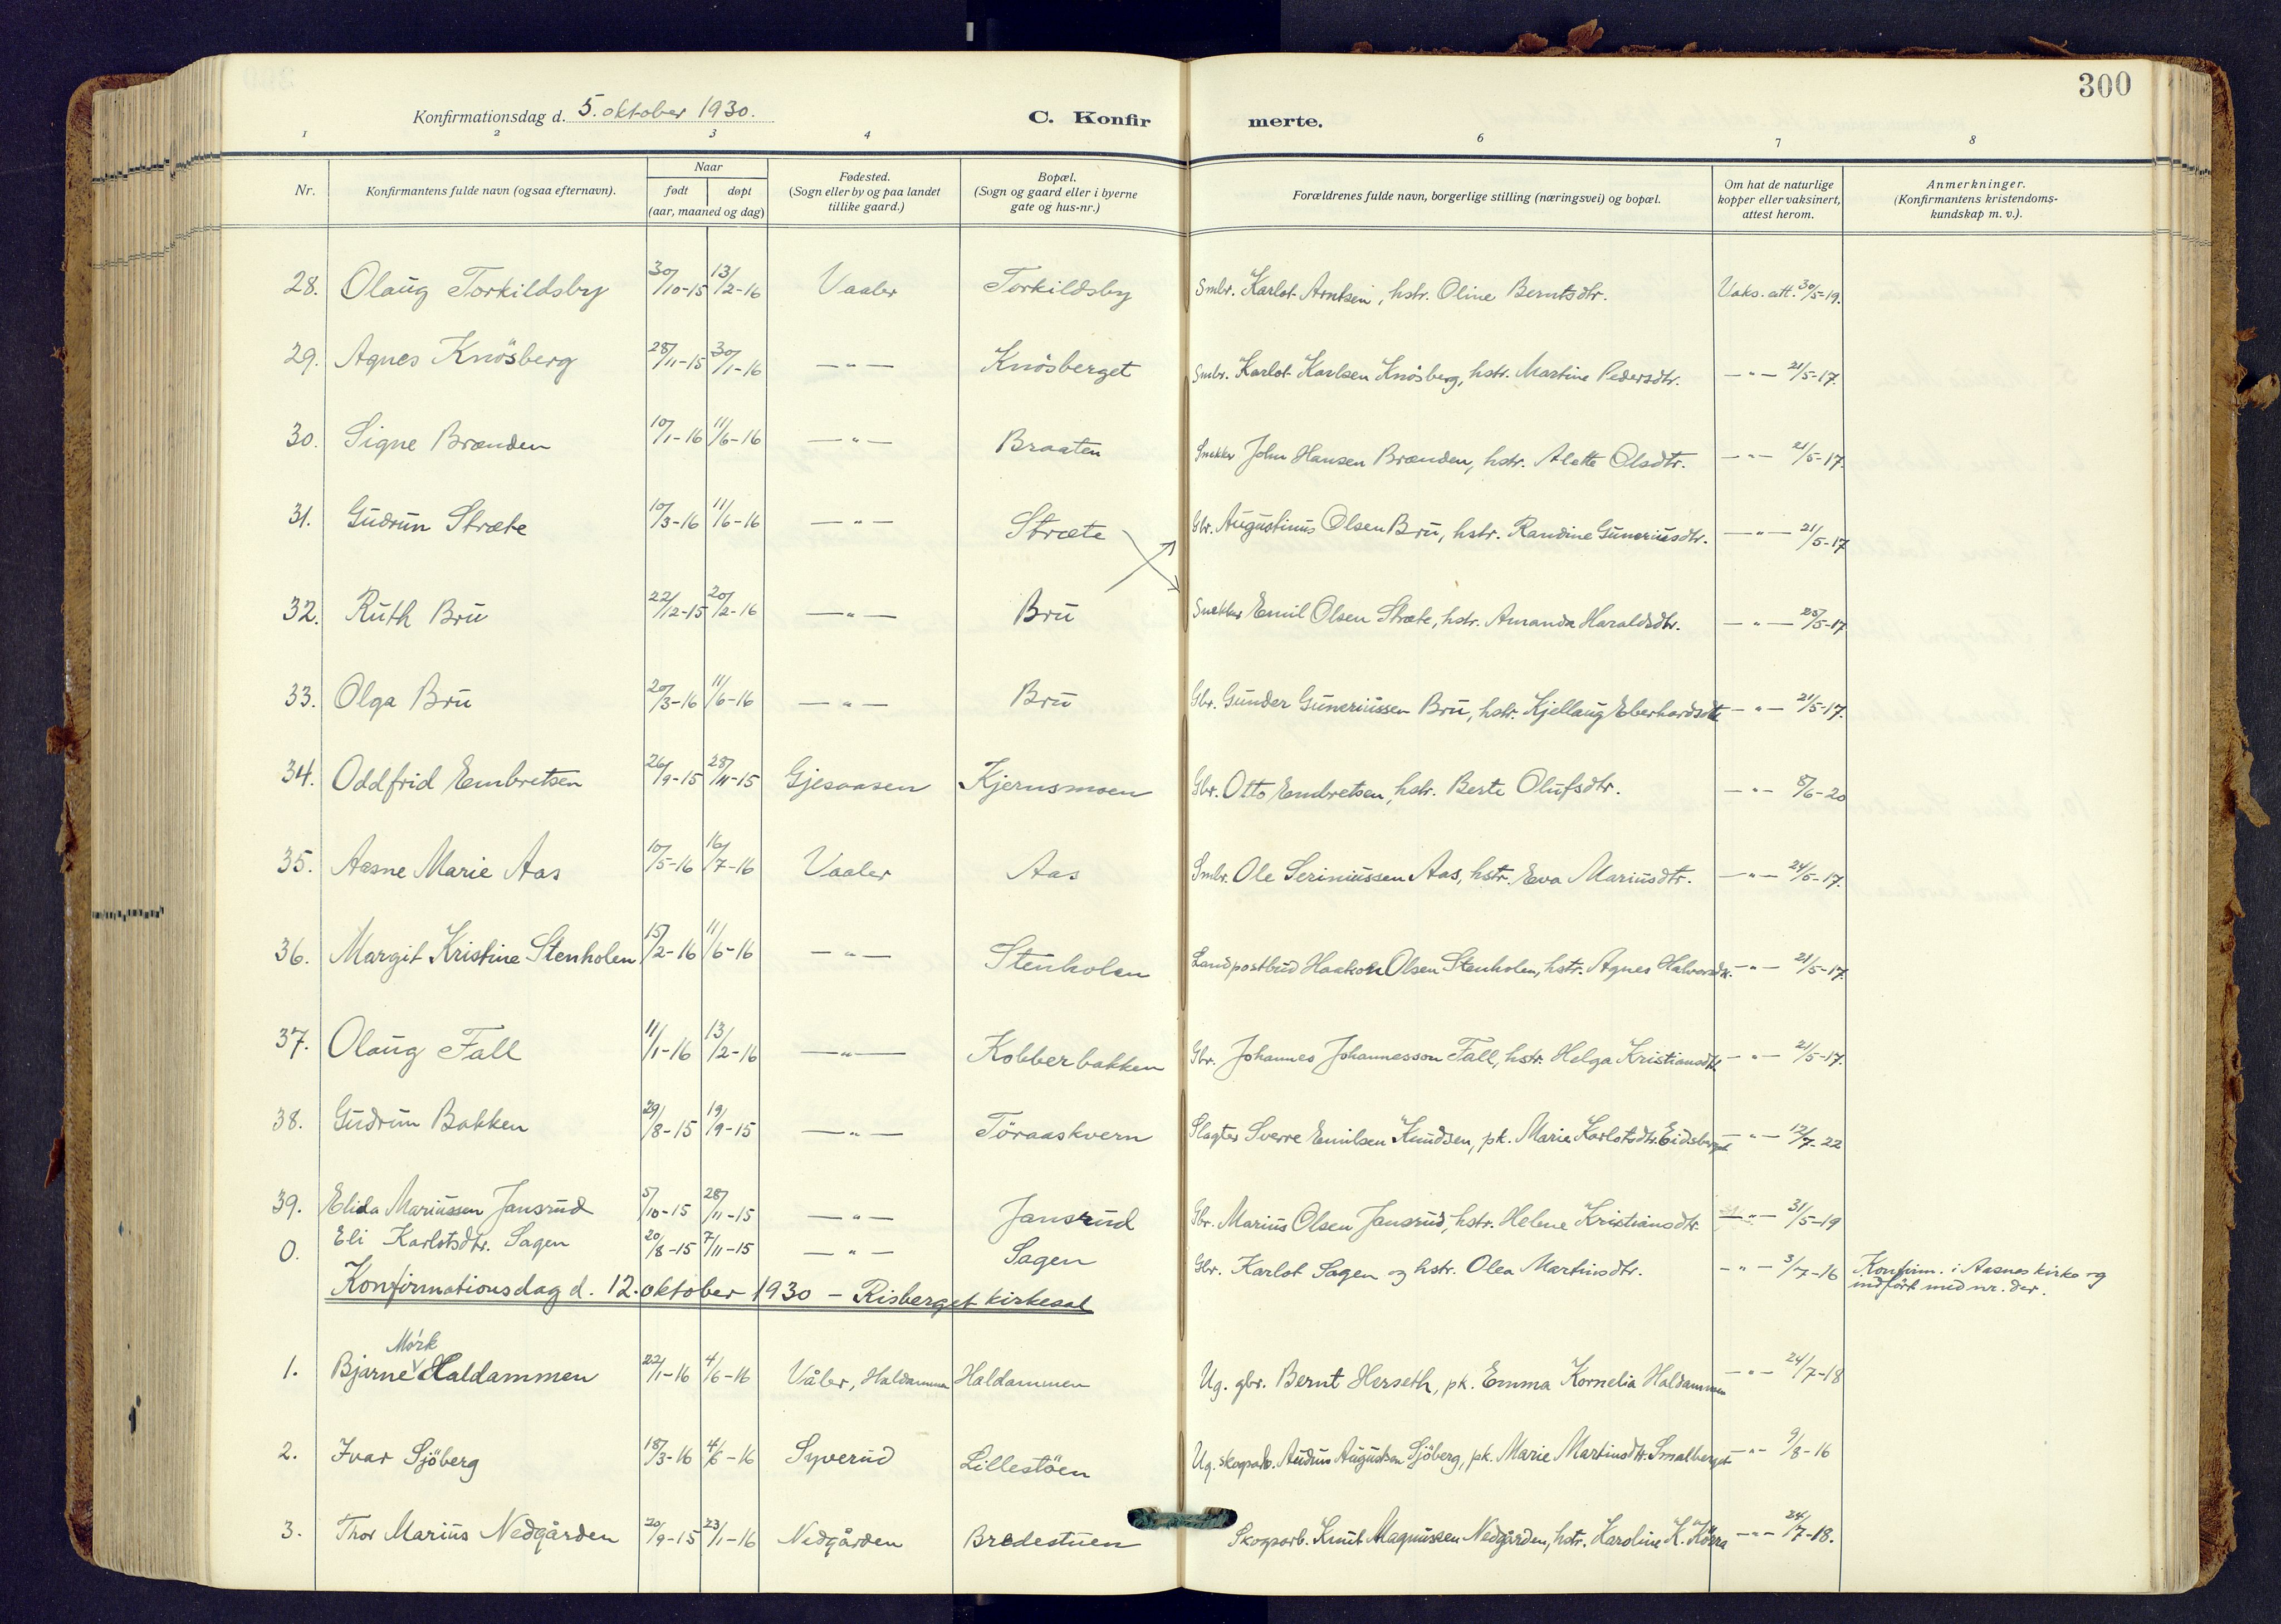 300
Konfirmationsdag d. 5. oktober 1930.
C. Konfirmerte.
1 2 3 4 6 7 8
Nr. Konfirmantens fulde navn (ogsaa efternavn). Naar født døpt (aar, maaned og dag) Fødested. (Sogn eller by og paa landet tillike gaard.) Bopæl. (Sogn og gaard eller i byerne gate og hus-nr.) Forældrenes fulde navn, borgerlige stilling (næringsvei) og bopæl. Om hat de naturlige kopper eller vaksinert, attest herom. Anmerkninger. (Konfirmantens kristendoms-kundskap m. v.).
28. Olaug Torkildsby 30/10-15 13/2-16 Vaaler Torkildsby Smbr. Karlot Arntsen, hstr. Oline Berntsdtr. Vaks. att. 30/5-19.
29. Agnes Knösberg 28/11-15 30/1-16 — " — Knösberget Smbr. Karlot Karlsen Knösberg, hstr. Martine Pedersdtr. — " — 21/5-17.
30. Signe Brænden 10/1-16 11/6-16 — " — Braaten Snekker John Hansen Brænden, hstr. Alette Olsdtr. — " — 21/5-17.
31. Gudrun Stræte 10/3-16 11/6-16 — " — Stræte Gbr. Augustinus Olsen Bru, hstr. Randine Guneriusdtr. — " — 21/5-17
32. Ruth Bru 22/12-15 20/2-16 — " — Bru Snekker Emil Olsen Stræte, hstr. Amanda Haraldsdtr. — " — 25/5-17
33. Olga Bru 20/3-16 11/6-16 — " — Bru Gbr. Gunder Guneriussen Bru, hstr. Kjellaug Eberhardsdtr. — " — 21/5-17.
34. Oddfrid Embretsen 26/9-15 28/11-15 Gjesaasen Kjernsmoen Gbr. Otto Embretsen, hstr. Berte Olufsdtr. — " — 8/6-20
35. Aasne Marie Aas 10/5-16 16/7-16 Vaaler Aas Smbr. Ole Seriniussen Aas, hstr. Eva Mariusdtr. — " — 24/5-17.
36. Margit Kristine Stenholen 15/2-16 11/6-16 — " — Stenholen Landpostbud Haakon Olsen Stenholen, hstr. Agnes Halvorsdtr. — " — 21/5-17.
37. Olaug Fall 11/1-16 13/2-16 — " — Kobberbakken Gbr. Johannes Johannesson Fall, hstr. Helga Kristiansdtr. — " — 21/5-17.
38. Gudrun Bakken 29/8-15 19/9-15 — " — Töraaskvern Slagter Sverre Emilsen Knudsen, pk. Marie Karlotsdtr. Eidsberget — " — 12/7-22
39. Elida Mariussen Jansrud 5/10-15 28/11-15 — " — Jansrud Gbr. Marius Olsen Jansrud, hstr. Helene Kristiansdtr. — " — 31/5-19
0. Eli Karlotsdtr. Sagen 20/8-15 7/11-15 — " — Sagen Gbr. Karlot Sagen og hstr. Olea Martinsdtr. — " — 3/7-16 Konfirm. i Aasnes kirke og
indført med nr. der.
Konfirmationsdag d. 12. oktober 1930 – Risberget kirkesal
Mörk
1. Bjarne Haldammen 22/1-16 4/6-16 Våler, Haldammen Haldammen Ug. gbr. Bernt Herseth, pk. Emma Kornelia Haldammen — " — 24/7-18
2. Ivar Sjöberg 18/3-16 4/6-16 Syverud Lillestöen Ug. skogsarb. August Sjöberg, pk. Marie Martinsdtr. Smalberget — " — 9/8-16
3. Thor Marius Nedgården 20/9-15 23/1-16 Nedgården Bredestuen Skogsarb. Knut Magnussen Nedgården, hstr. Karoline K. — " — 24/7-18.